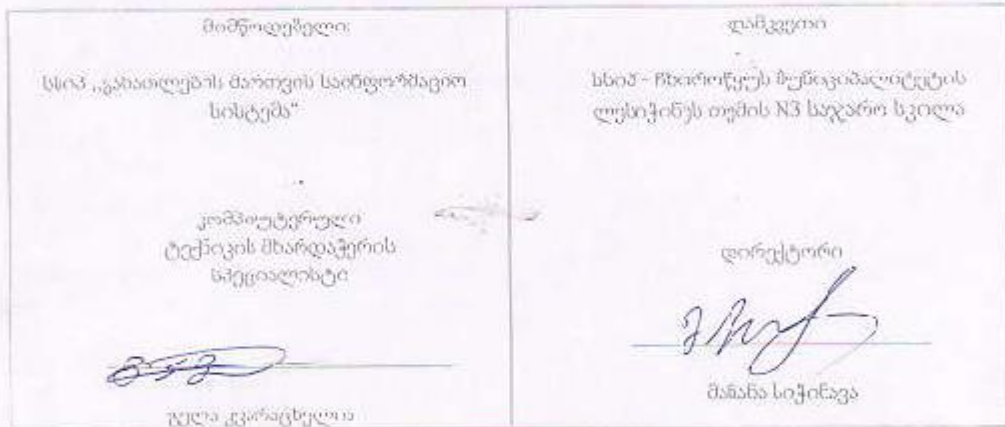 მიმწოდებელი:
სსიპ „განათლების მართვის საინფორმაციო
სისტემა"
კომპიუტერული
ტექნიკის მხარდაჭერის
სპეციალისტი
გელა კვარაცხელია
დამკვეთი
სსიპ - ჩხოროწყუს მუნიციპალიტეტის
ლესიჭინეს თემის N3 საჯარო სკოლა
დირექტორი
მანანა სიჭინავა